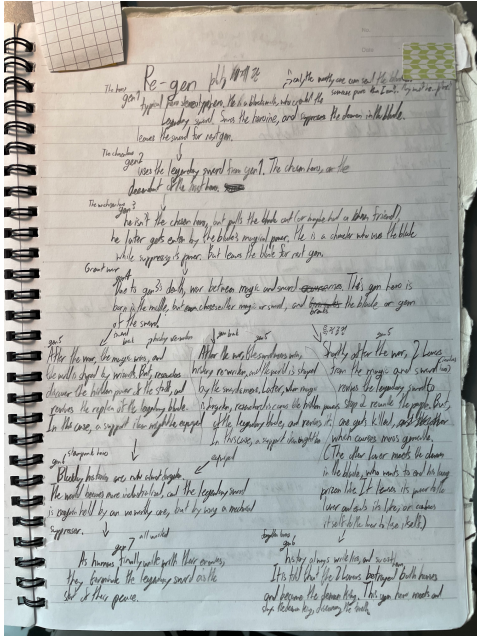 Re-gen
The hero
gen1
typical hero, He is a blacksmith, who created the
Legendary sword. Saves the heroine, and suppresses the demon in the blade.
leaves the sword for next gen.
The chosen
gen2
uses the legendary sword from gen1. The chosen hero, or the
descendant of the last hero.
gen3
he isn't the chosen hero, but pulls the blade out (or maybe had a chosen friend),
he later gets eaten by the blade's magical power. He is a character who uses the blade
while suppressing its power. But leaves the blade for next gen.
Great war
gen4
Due to gen3's death, war between magic and sword. This gen hero is
born in the middle, but can choose either magic or sword, and the blade or gem
of the sword.
gen5
After the war, the magic wins, and
the world is shaped by wizards. But, researchers
discover the hidden power of the staff, and
revives the replica of the legendary blade.
In this case, a support item might be equipped
gen5
After the war, the swordsmen wins,
history re-written, and the world is shaped
by the swordsmen. Later, when magic
is forgotten, researchers discover the hidden power
of the legendary blade, and revives it.
In this case, a support item might be
equipped
gen5
Shortly after the war, 2 lovers
from the magic and sword
revives the legendary sword
to rewrite the people. But,
one gets killed, and the other
which causes mass genocide.
(The other lover meets the demon
in the blade, who wants to end his long
prison life. It leaves its power to the
lover and ends its life, or makes
itself to the hero to lose itself)
gen6
Steampunk hero
Bloody histories are now almost forgotten.
The world becomes more industrialized, and the legendary sword
is once again held by an unworthy one, but by using a mechanical
suppressor.
gen7
all united
As humans finally unite with their enemies,
they terminate the legendary sword as the
star of their peace.
forgotten hero
gen6
history always write lies, and so as this one.
It is told that the 2 lovers betrayed both homes
and became the demon king. This gen hero meets and
slays the demon king, discovering the truth.